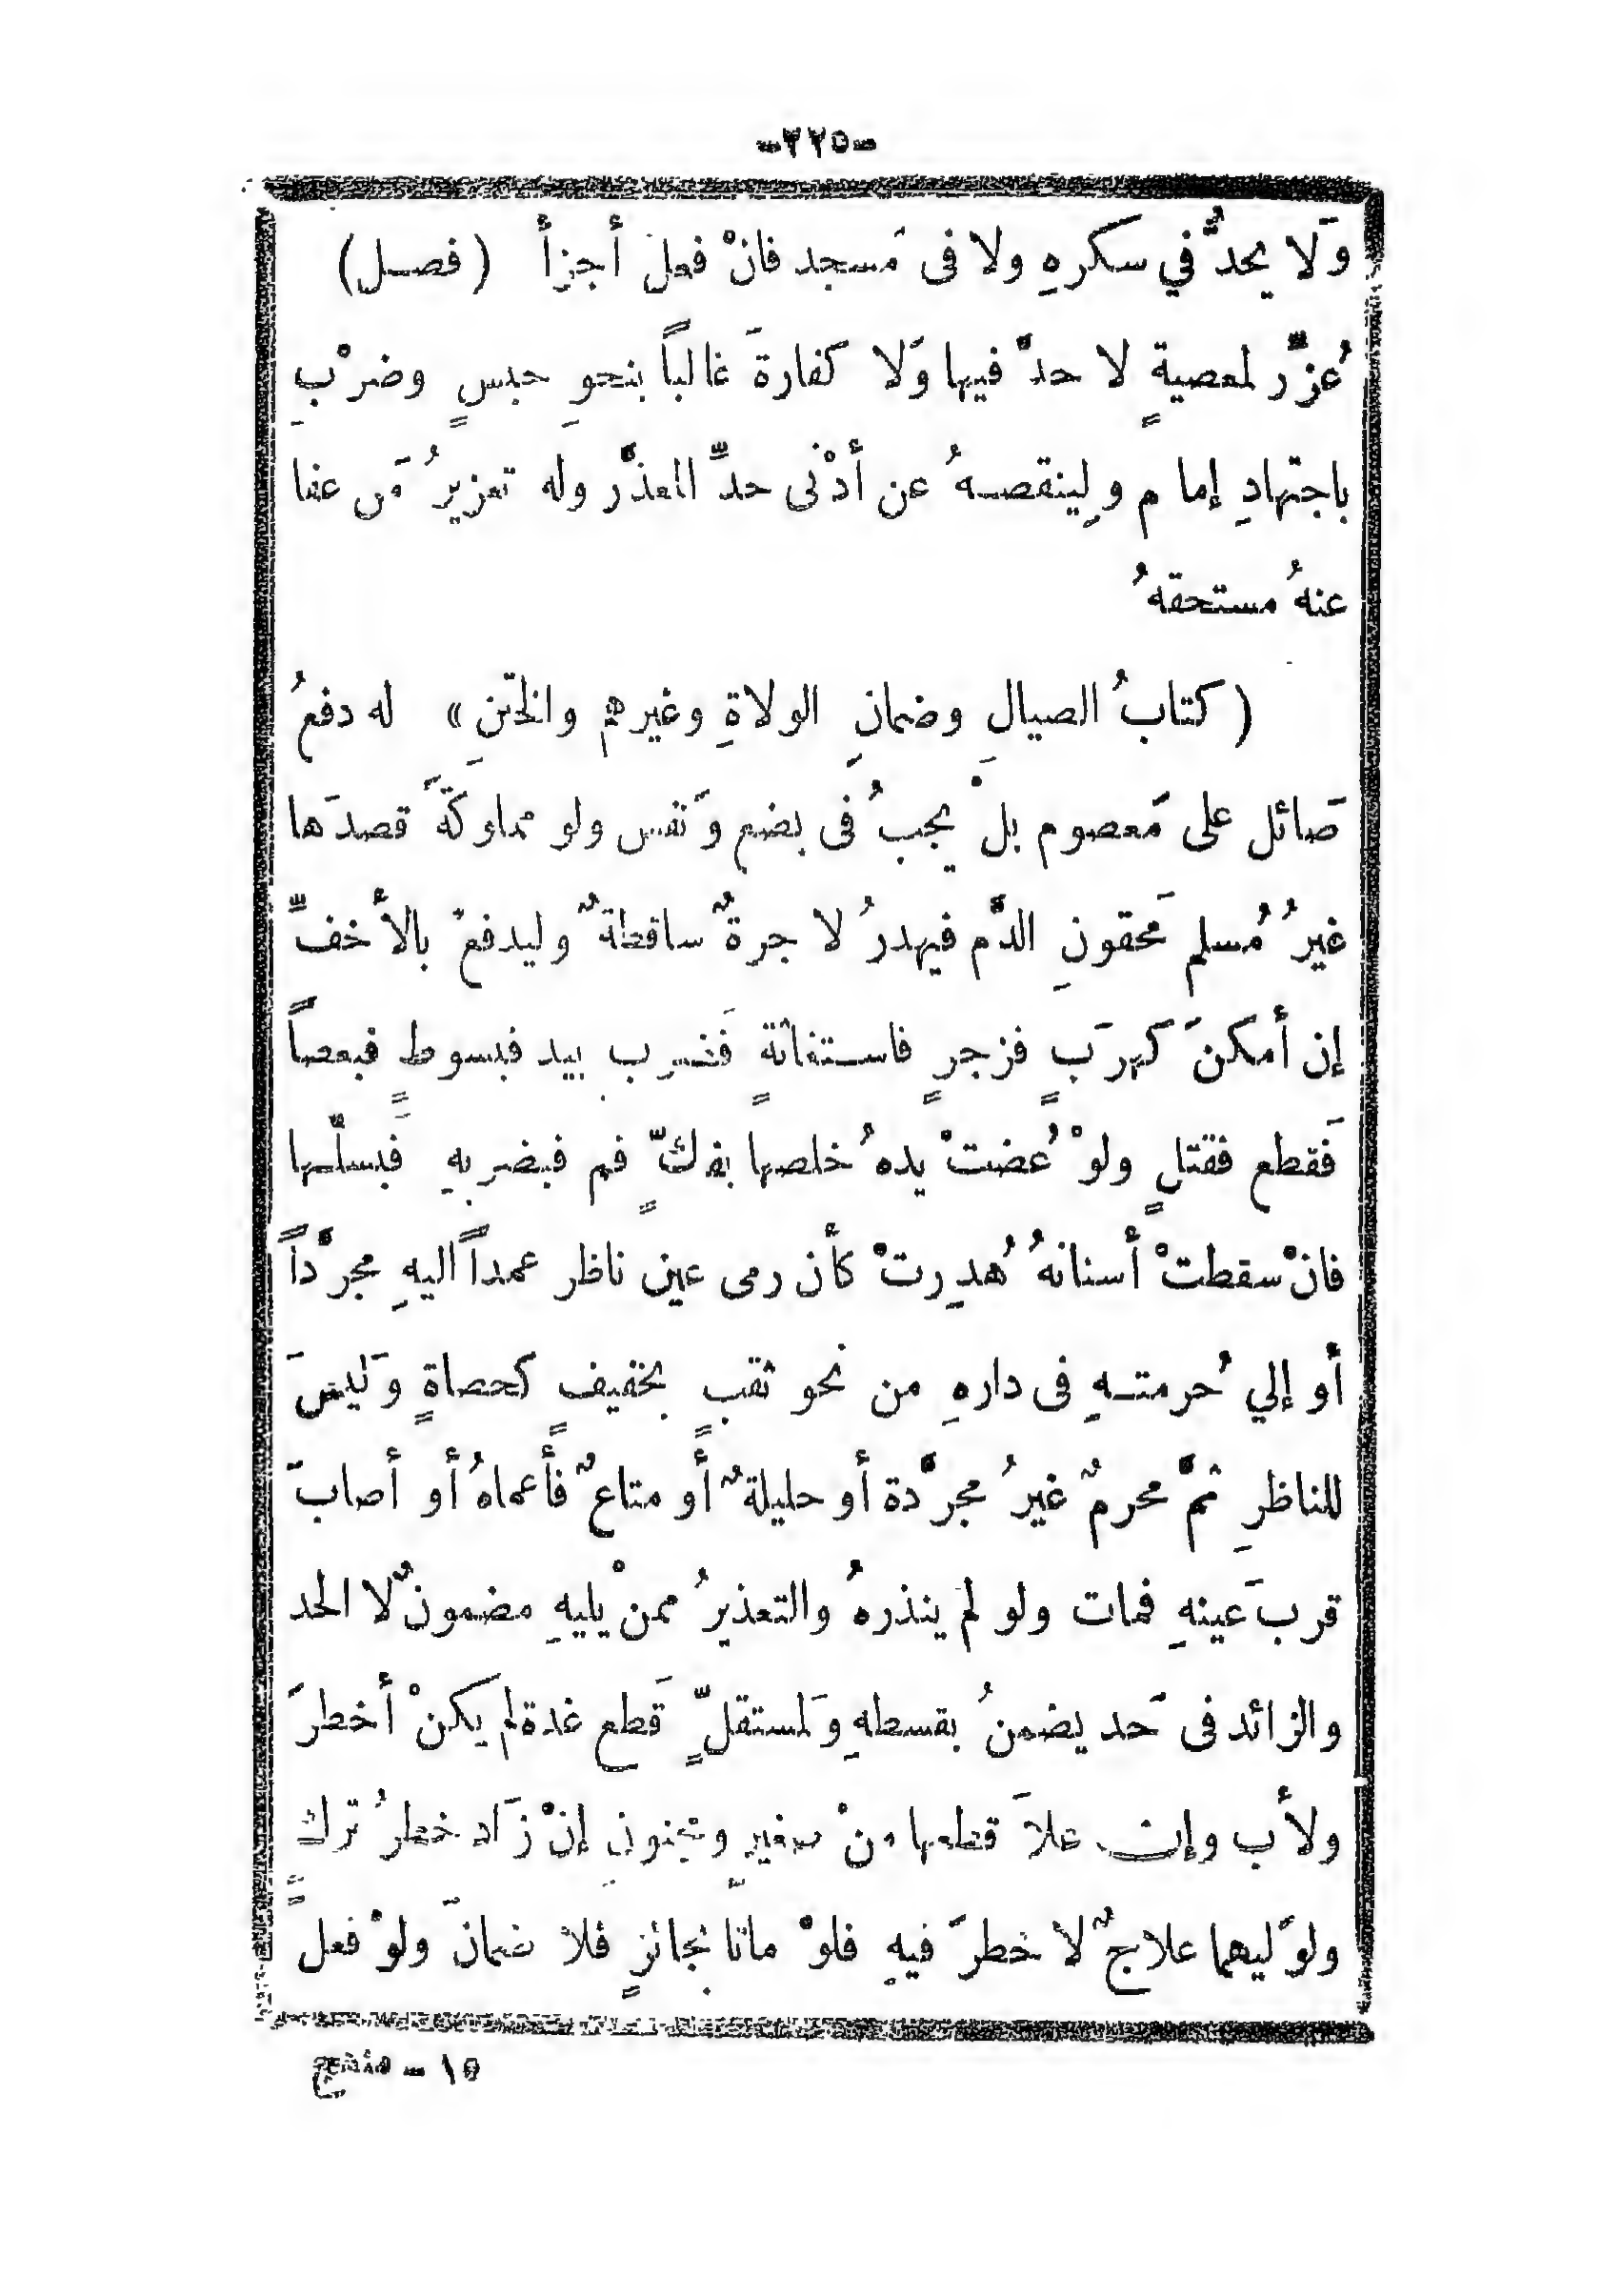 -٢٢٥-
وَلا يحدُّ في سكرهِ ولا فى مَسجد فانْ فعل أجزأ (فصـل)
عُزِّر لمعصيةٍ لا حدَّ فيها وَلا كفارةَ غالباً بنحوِ حبسٍ وضرْبِ
باجتهادِ إمام ولِينقصـهُ عن أدْنى حدِّ المعذَّر وله تعزيرُ مَن عفا
عنهُ مستحقهُ
(كتابُ الصيالِ وضمانِ الولاةِ وغيرهم والختنِ) له دفعُ
صَائل على مَعصوم بلْ يجبُ فى بضع وَنفس ولو مملوكةً قصدَها
غيرُ مُسلم مَحقونِ الدَّم فيهدرُ لا جرةٌ ساقطةٌ وليدفعْ بالأخفِّ
إن أمكنَ كهرَبٍ فزجرٍ فاستغاثةٍ فَضرب بيد فبسوطٍ فبعصاً
فَقطع فقتلٍ ولوْ عُضتْ يدهُ خلصها بفكِّ فم فبضربهِ فَبسلّها
فانْ سقطتْ أسنانهُ هُدِرتْ كأن رمى عين ناظر عمداً اليهِ مجرَّداً
أو إلي حُرمتـهِ فى دارهِ من نحو ثقبٍ بخفيفٍ كحصاةٍ وَليسَ
للناظرِ ثمَّ محرمٌ غيرُ مجرَّدة أو حليلةٌ أو متاعٌ فأعماهُ أو أصابَ
قربَ عينهِ فمات ولو لم ينذرهُ والتعذيرُ ممنْ يليهِ مضمونٌ لا الحد
والزائد فى حَد يضمنُ بقسطهِ وَلمستقلٍّ قَطع غدة لم يكنْ أخطرَ
ولأب وإن علاَ قطعها منْ صغيرٍ ومجنونٍ إنْ زَاد خطرُ تركٍ
ولوَليهما علاجٌ لا خطرَ فيهِ فلوْ ماتا بجائزٍ فلا ضمانَ ولوْ فعل
١٥ - منهج